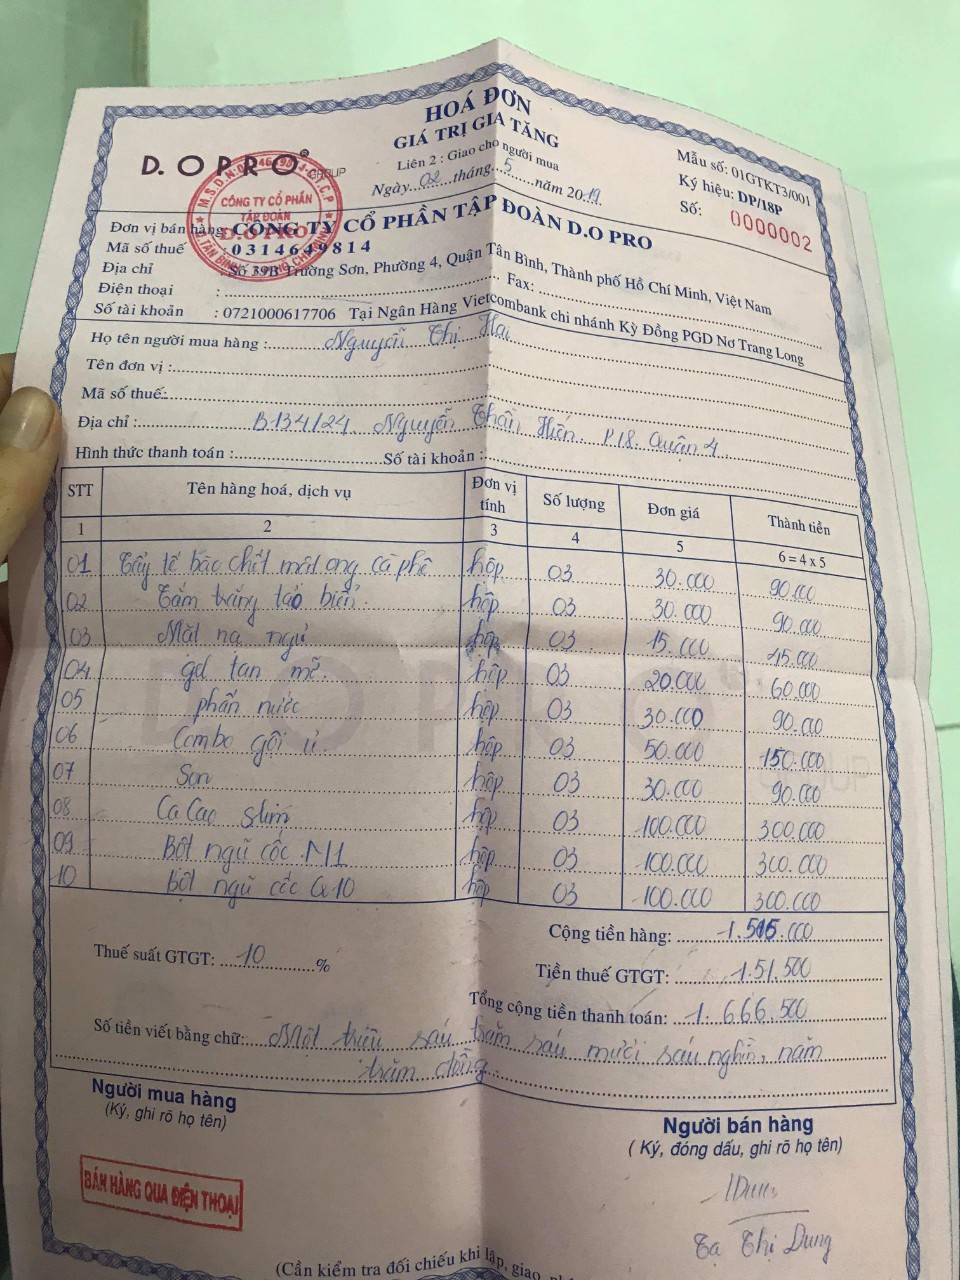 HOÁ ĐƠN
GIÁ TRỊ GIA TĂNG
Liên 2 : Giao cho người mua
Ngày 02 tháng 5 năm 2019
Mẫu số: 01GTKT3/001
Ký hiệu: DP/18P
Số: 0000002
D.OPRO® GROUP
CÔNG TY CỔ PHẦN
TẬP ĐOÀN
D.O PRO
Đơn vị bán hàng: CÔNG TY CỔ PHẦN TẬP ĐOÀN D.O PRO
Mã số thuế : 0314649814
Địa chỉ : Số 39B Trường Sơn, Phường 4, Quận Tân Bình, Thành phố Hồ Chí Minh, Việt Nam
Điện thoại : Fax:
Số tài khoản : 0721000617706 Tại Ngân Hàng Vietcombank chi nhánh Kỳ Đồng PGD Nơ Trang Long
Họ tên người mua hàng : Nguyễn Thị Hai
Tên đơn vị :
Mã số thuế:
Địa chỉ : B134/24 Nguyễn Thần Hiến. P18. Quận 4
Hình thức thanh toán : Số tài khoản :
STT Tên hàng hoá, dịch vụ Đơn vị tính Số lượng Đơn giá Thành tiền
1 2 3 4 5 6 = 4 x 5
01 Tẩy tế bào chết mật ong cà phê hộp 03 30.000 90.000
02 Tắm trắng tảo biển. hộp 03 30.000 90.000
03 Mặt nạ ngủ hộp 03 15.000 45.000
04 gel tan mỡ. hộp 03 20.000 60.000
05 phấn nước hộp 03 30.000 90.000
06 Combo gội ủ. hộp 03 50.000 150.000
07 Son hộp 03 30.000 90.000
08 Ca Cao slim hộp 03 100.000 300.000
09 Bột ngũ cốc M1 hộp 03 100.000 300.000
10 Bột ngũ cốc Q10 hộp 03 100.000 300.000
D.OPRO® GROUP
Cộng tiền hàng: 1.515.000
Thuế suất GTGT: 10 % Tiền thuế GTGT: 151.500
Tổng cộng tiền thanh toán: 1.666.500
Số tiền viết bằng chữ: Một triệu sáu trăm sáu mươi sáu nghìn, năm
trăm đồng.
Người mua hàng
(Ký, ghi rõ họ tên)
Người bán hàng
( Ký, đóng dấu, ghi rõ họ tên)
BÁN HÀNG QUA ĐIỆN THOẠI
Dung
Tạ Thị Dung
(Cần kiểm tra đối chiếu khi lập, giao,